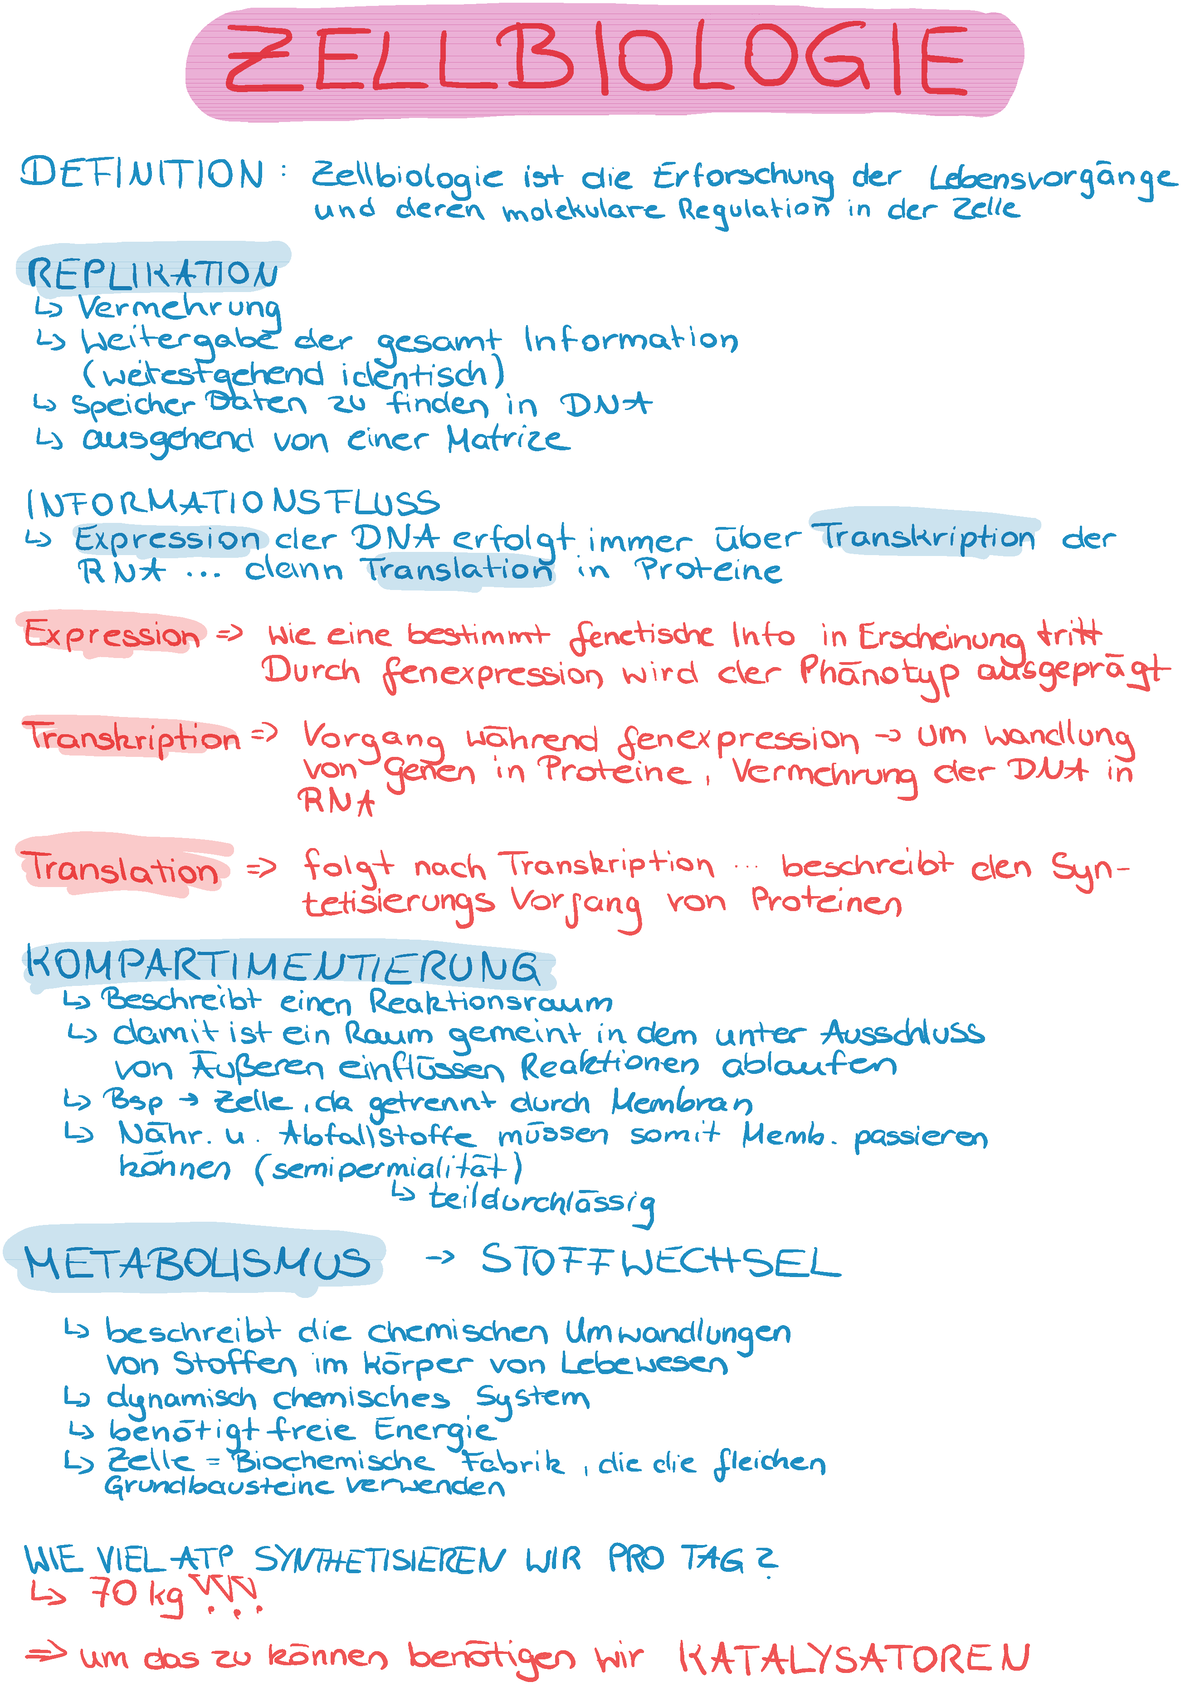 ZELLBIOLOGIE
DEFINITION: Zellbiologie ist die Erforschung der Lebensvorgänge
und deren molekulare Regulation in der Zelle
REPLIKATION
↳ Vermehrung
↳ Weitergabe der gesamt Information
(weitestgehend identisch)
↳ Speicher Daten zu finden in DNA
↳ ausgehend von einer Matrize
INFORMATIONSFLUSS
↳ Expression der DNA erfolgt immer über Transkription der
RNA ... dann Translation in Proteine
Expression => wie eine bestimmt genetische Info in Erscheinung tritt
Durch Genexpression wird der Phänotyp ausgeprägt
Transkription => Vorgang während Genexpression → Um wandlung
von Genen in Proteine, Vermehrung der DNA in
RNA
Translation => folgt nach Transkription ... beschreibt den Syn-
tetisierungs Vorgang von Proteinen
KOMPARTIMENTIERUNG
↳ Beschreibt einen Reaktionsraum
↳ damit ist ein Raum gemeint in dem unter Ausschluss
von Äußeren einflüssen Reaktionen ablaufen
↳ Bsp → Zelle, da getrennt durch Membran
↳ Nähr. u. Abfallstoffe müssen somit Memb. passieren
können (semipermialität)
↳ teildurchlässig
METABOLISMUS → STOFFWECHSEL
↳ beschreibt die chemischen Umwandlungen
von Stoffen im Körper von Lebewesen
↳ dynamisch chemisches System
↳ benötigt freie Energie
↳ Zelle = Biochemische Fabrik, die die gleichen
Grundbausteine verwenden
WIE VIEL ATP SYNTHETISIEREN WIR PRO TAG?
↳ 70 kg !!!
=> um das zu können benötigen wir KATALYSATOREN